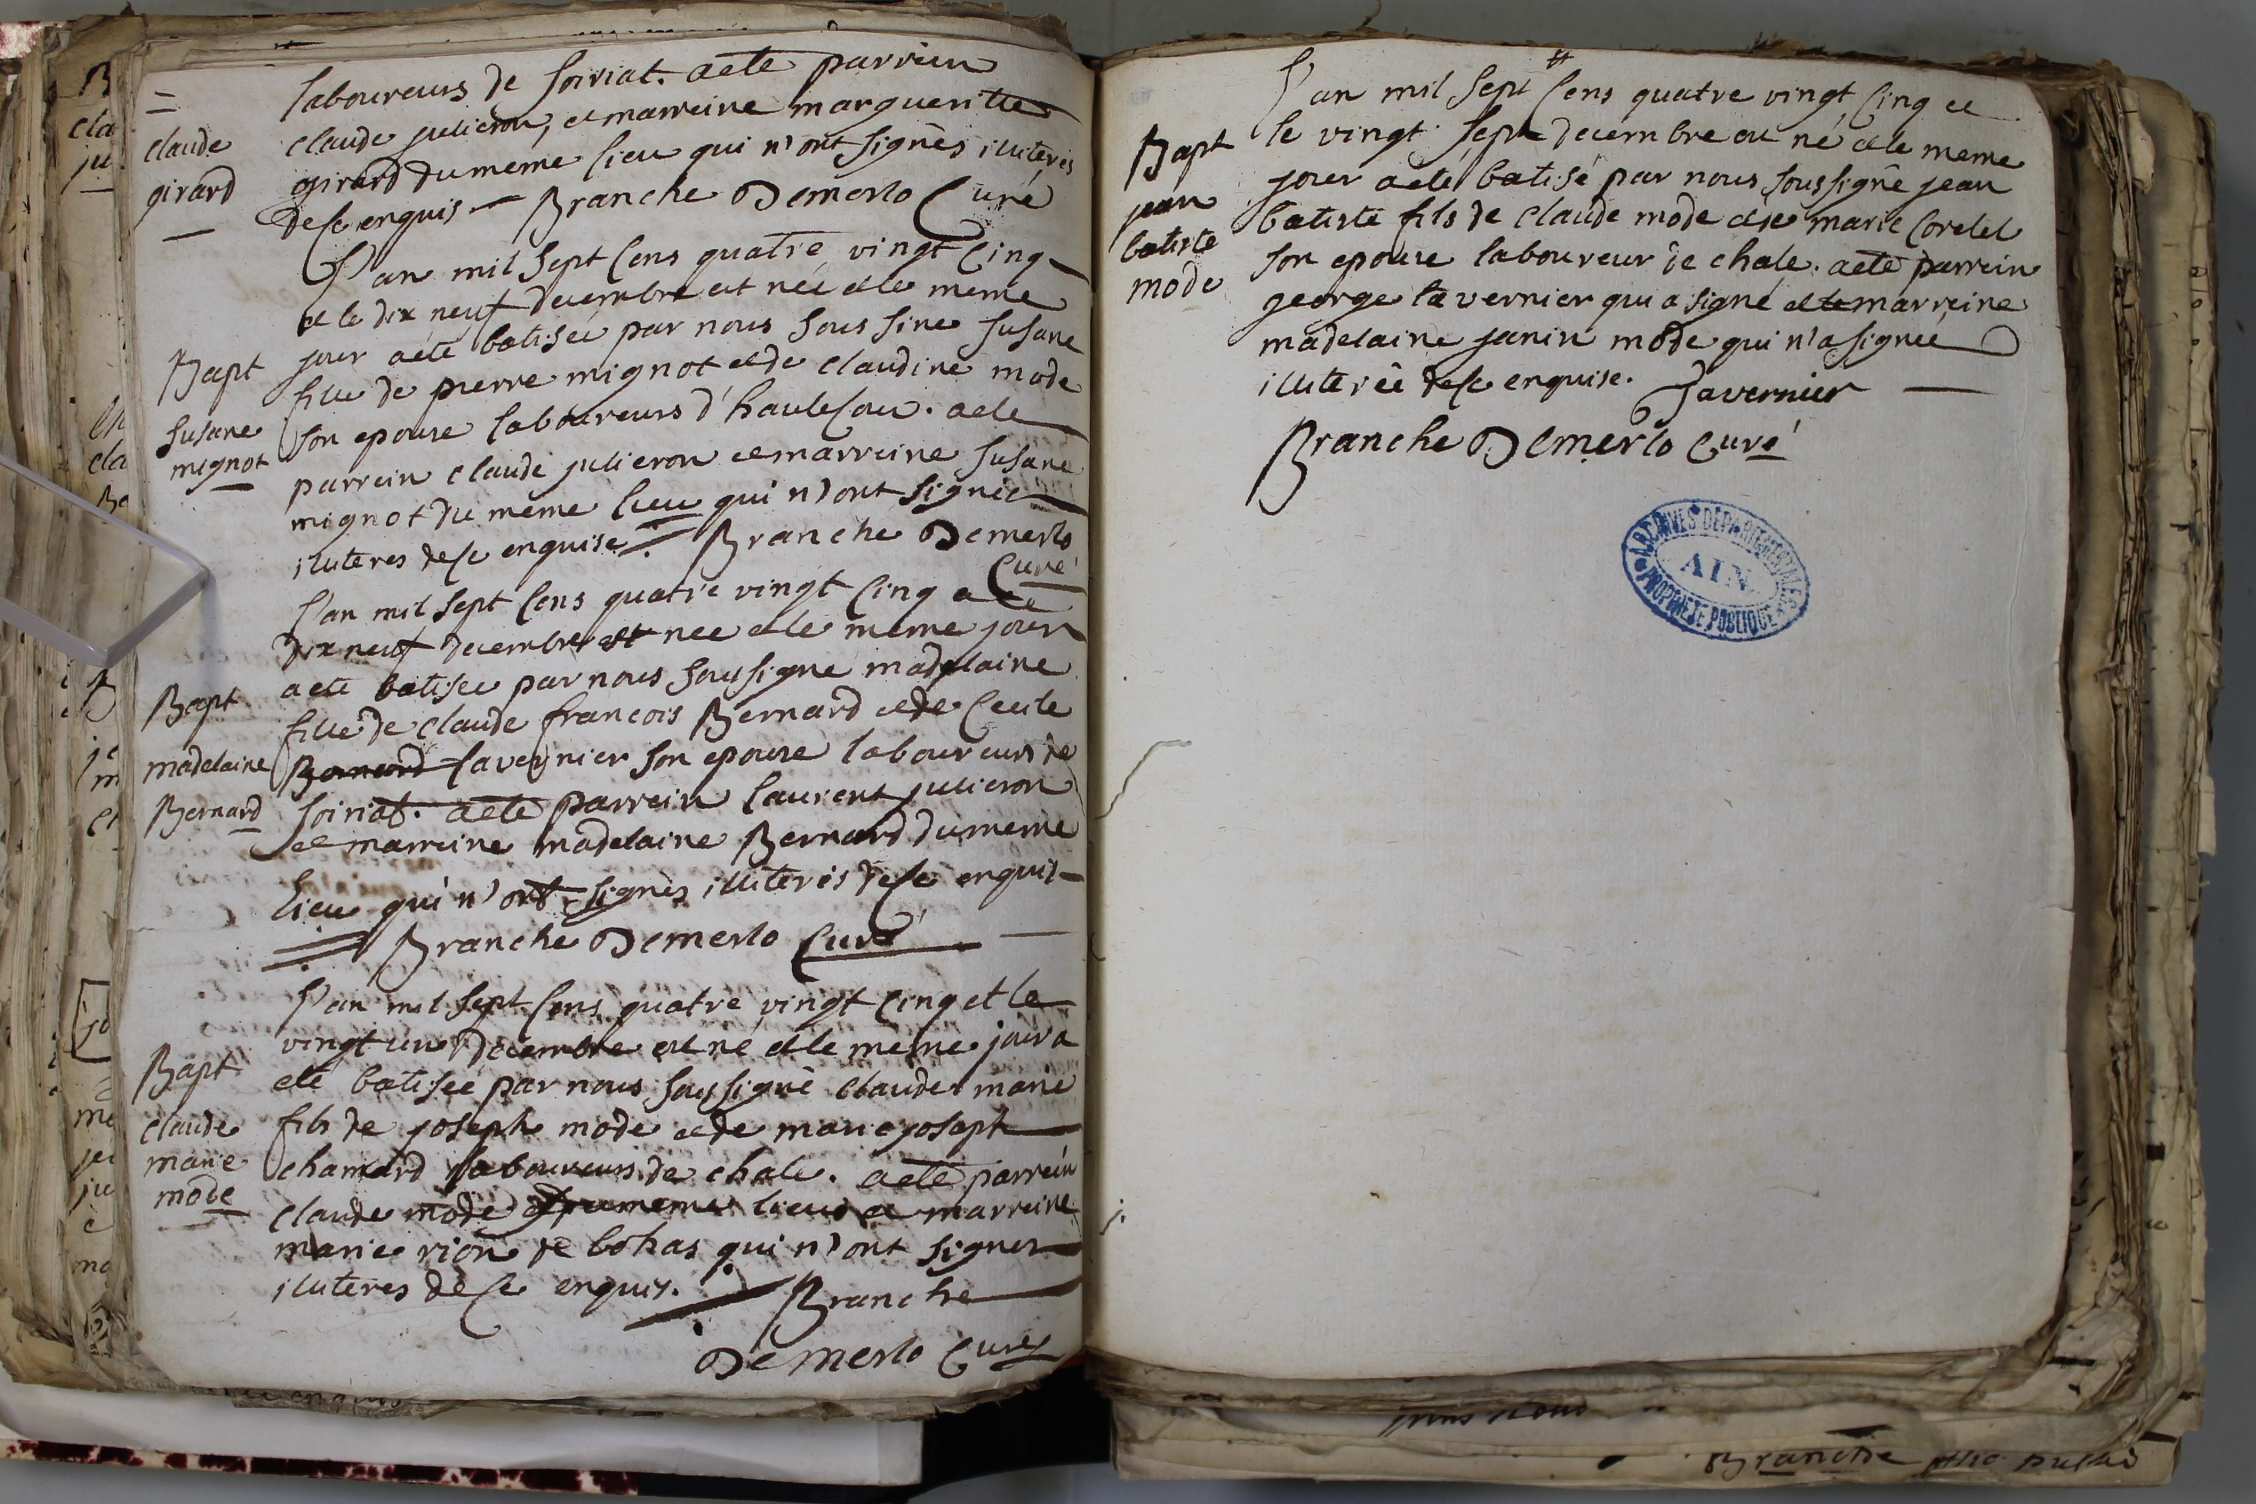 =
claude
girard
laboureurs de soiriat. aete parrein
claude julieron, et marreine margueritte
girard du meme lieu qui n'ont signès illiteres
de ce enquis — Branche Demerlo Curé
Bapt
susane
mignot
L'an mil sept cens quatre vingt cinq
et le dix neuf decembre est neé et le meme
jour aété batisée par nous sous siné susane
fille de pierre mignot et de claudine mode
son epouse laboureurs d'hautecour. aete
parrein claude julieron et marreine susane
mignot du meme lieu qui n'ont signée
illiteres de ce enquise Branche Demerlo
Curé
Bapt
madelaine
Bernard
L'an mil sept cens quatre vingt cinq et le
dix neuf decembre est neé et le meme jour
aeté batisee par nous soussigne madelaine
fille de claude francois Bernard et de Cecile
Bernard tavernier son epouse laboureurs de
soiriat. aeté parrein laurent julieron
et marreine madelaine Bernard du meme
lieu qui n'ont signès illiterés de ce enquis
Branche Demerlo Curé
Bapt
claude
marie
mode
L'an mil sept cens quatre vingt cinq et le
vingt un decembre est né et le meme jour a
eté batiseé par nous soussigné claude marie
fils de joseph mode et de marie josapt
chanard laboureurs de chale. aete parrein
claude mode du meme lieu et marreine
marie rion de bohas qui n'ont signer
illiteres de ce enquis. Branche
Demerlo Curé
Bapt
jean
batiste
mode
L'an mil sept cens quatre vingt cinq et
le vingt sept decembre est né et le meme
jour aeté batisé par nous soussigné jean
batiste fils de claude mode et de marie Cordel
son epouse laboureur de chale. aeté parrein
george tavernier qui a signé et marreine
madelaine janin mode qui n'a signée
illiterée de ce enquise. Tavernier
Branche Demerlo Curé
ARCHIVES DEPARTEMENTALES
AIN
PROPRIETE PUBLIQUE
Branche